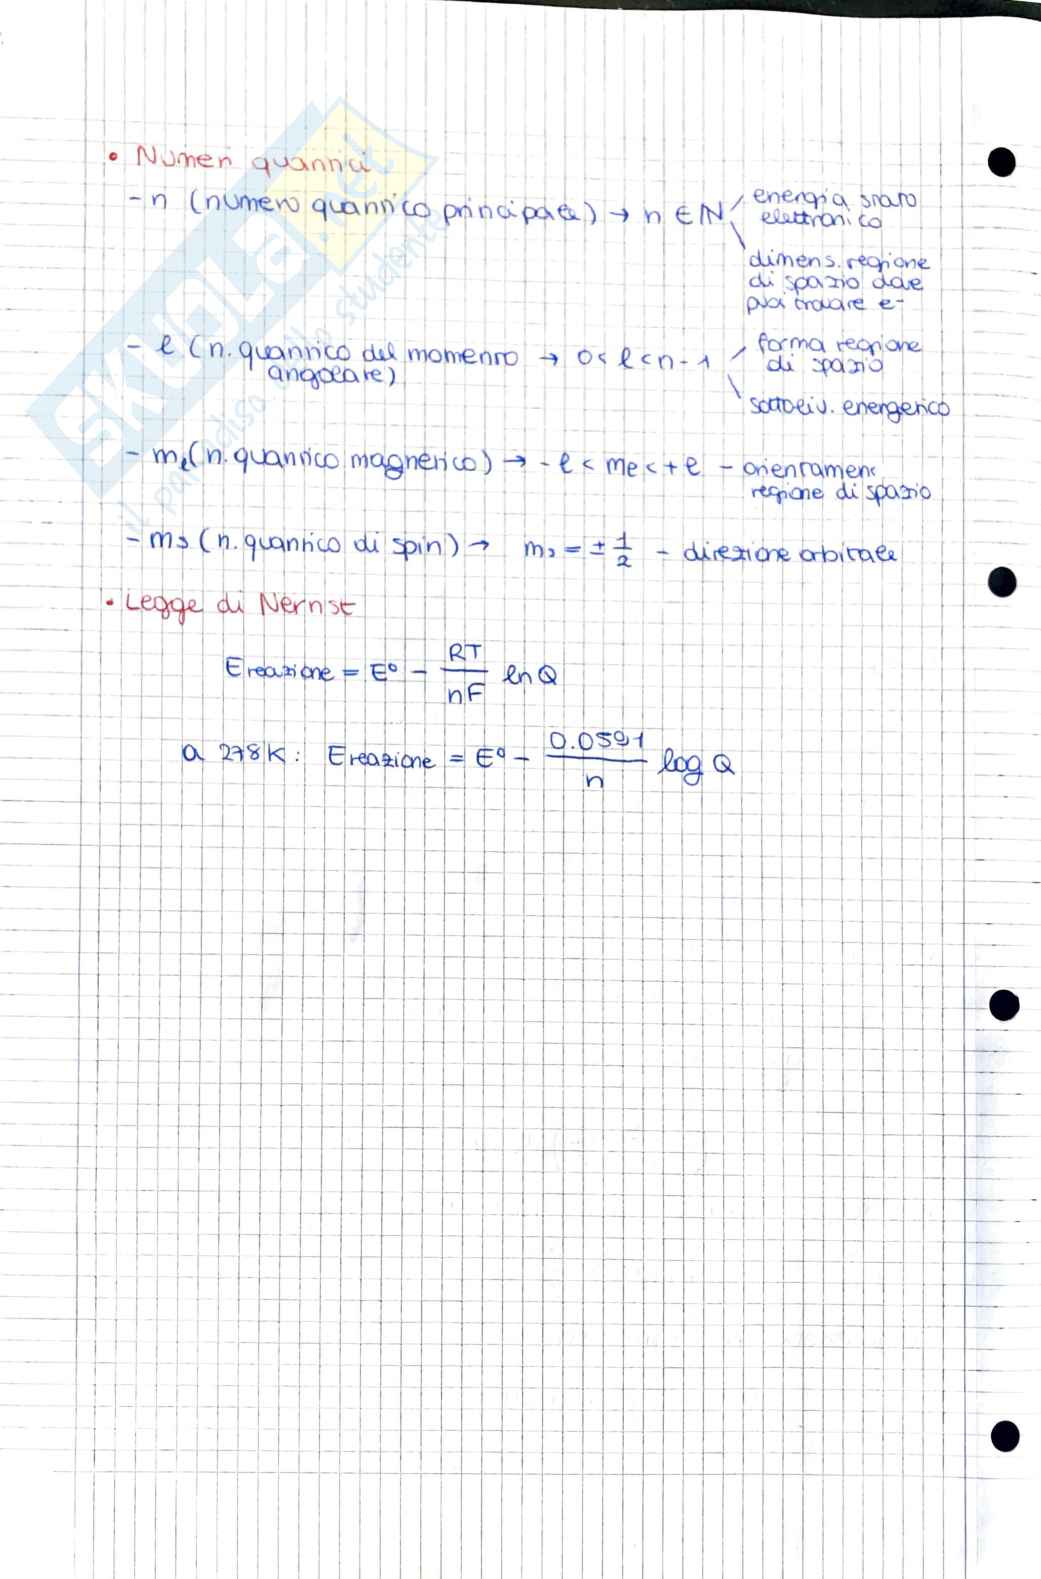 • Numeri quantici
- n (numero quantico principale) → n ∈ N
energia stato
elettronico
dimens. regione
di spazio dove
puoi trovare e-
- l (n. quantico del momento → 0 < l < n - 1
angolare)
forma regione
di spazio
sottoliv. energetico
- ml (n. quantico magnetico) → - l < ml < + l - orientamen
regione di spazio
- ms (n. quantico di spin) → ms = ± 1/2 - direzione orbitale
• Legge di Nernst
E reazione = E° - RT/nF ln Q
a 278K: E reazione = E° - 0.0591/n log Q
SKUOLA.net
il paradiso dello studente